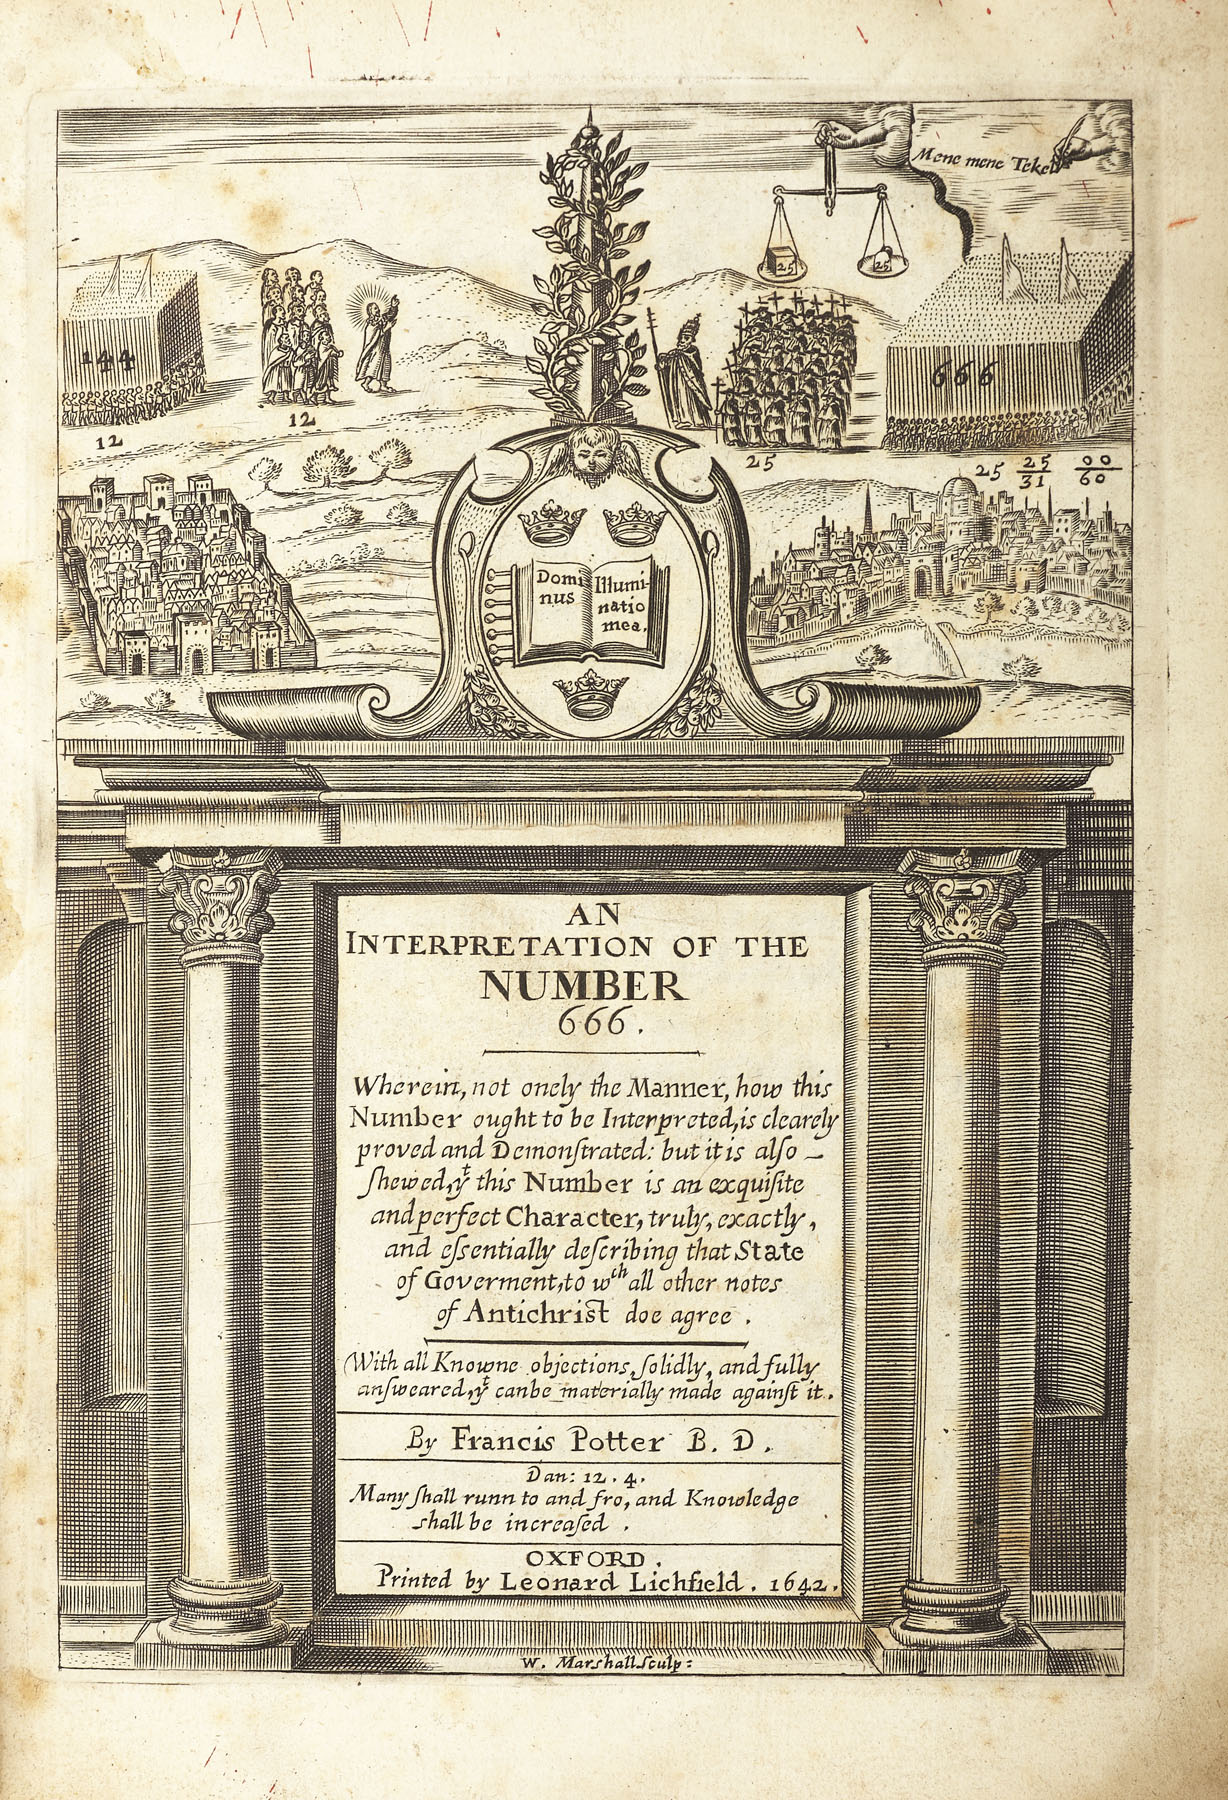 Mene mene Tekel
25
25
144
12
12
25
666
25 25 00
31 60
Domi Illumi-
nus natio
mea.
AN
INTERPRETATION OF THE
NUMBER
666.
Wherein, not onely the Manner, how this
Number ought to be Interpreted, is clearely
proved and Demonſtrated: but it is also –
ſhewed, yᵗ this Number is an exquiſite
and perfect Character, truly, exactly,
and eſsentially deſcribing that State
of Goverment, to wᶜʰ all other notes
of Antichrist doe agree.
(With all Knowne objections, ſolidly, and fully
anſweared, yᵗ canbe materially made againſt it.
By Francis Potter B. D.
Dan: 12. 4.
Many ſhall runn to and fro, and Knowledge
shall be increaſed.
OXFORD.
Printed by Leonard Lichfield. 1642.
W. Marshall Sculp: